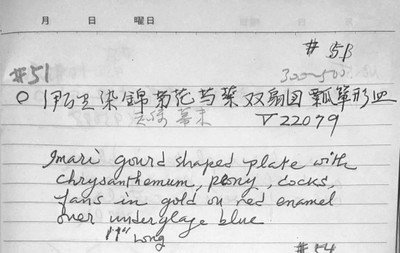 月 日 曜日
#
#51
300~500
○ 伊万里染錦菊花芍薬双扇図瓢箪形皿
幕末 V22079
Imari gourd shaped plate with
chrysanthemum, peony, cocks,
fans in gold on red enamel
over underglaze blue
11" Long
#54